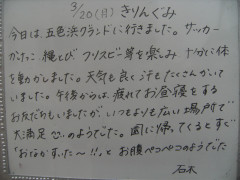 3/20(月) きりんぐみ
今日は、五色浜グランドに行きました。サッカー
かけっこ 縄とび フリスビー等を楽しみ 十分に体
を動かしました。天気も良く汗もたくさんかいて
いました。午後からは、疲れてお昼寝をする
お友だちもいましたが、いつもよりも広い場所で
大満足 のようでした。園に帰ってくるとすぐ
「おなかすいた〜!!」とお腹ペコペコのようでした